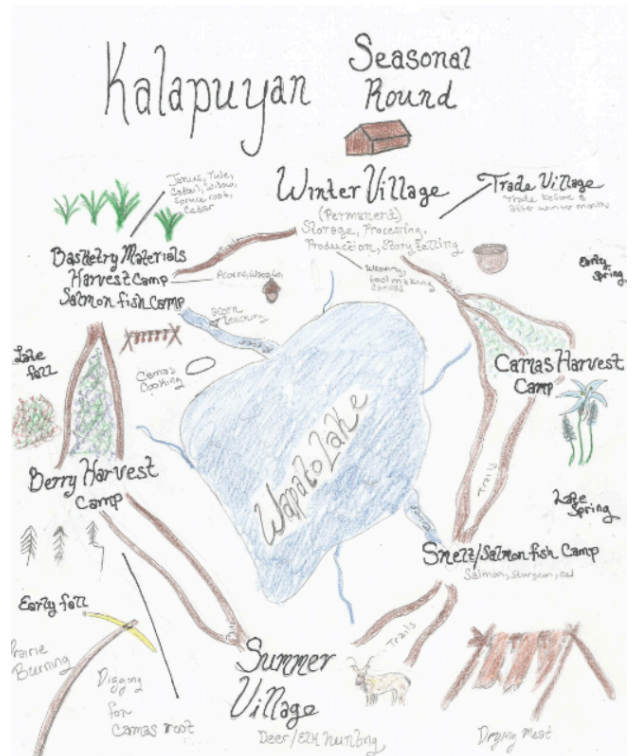 Kalapuyan
Seasonal
Round
Winter Village
(Permanent)
Storage, Processing,
Production, Story telling
Trade Village
Trade before &
after winter months
Tule,
Cattail, Willow,
Spruce root,
Cedar
Basketry Materials
Harvest Camp
Salmon fish Camp
Acorns,
Weaving,
tool making
canoes
Early
Spring
acorn
leaching
Camas
Cooking
Late
fall
Camas Harvest
Camp
Wapato Lake
Trails
Berry Harvest
Camp
Late
Spring
Smelt/Salmon fish Camp
Salmon, Sturgeon, eel
Early fall
Prairie
Burning
Digging
for
Camas root
Trails
Summer
Village
Deer/Elk hunting
Drying Meat